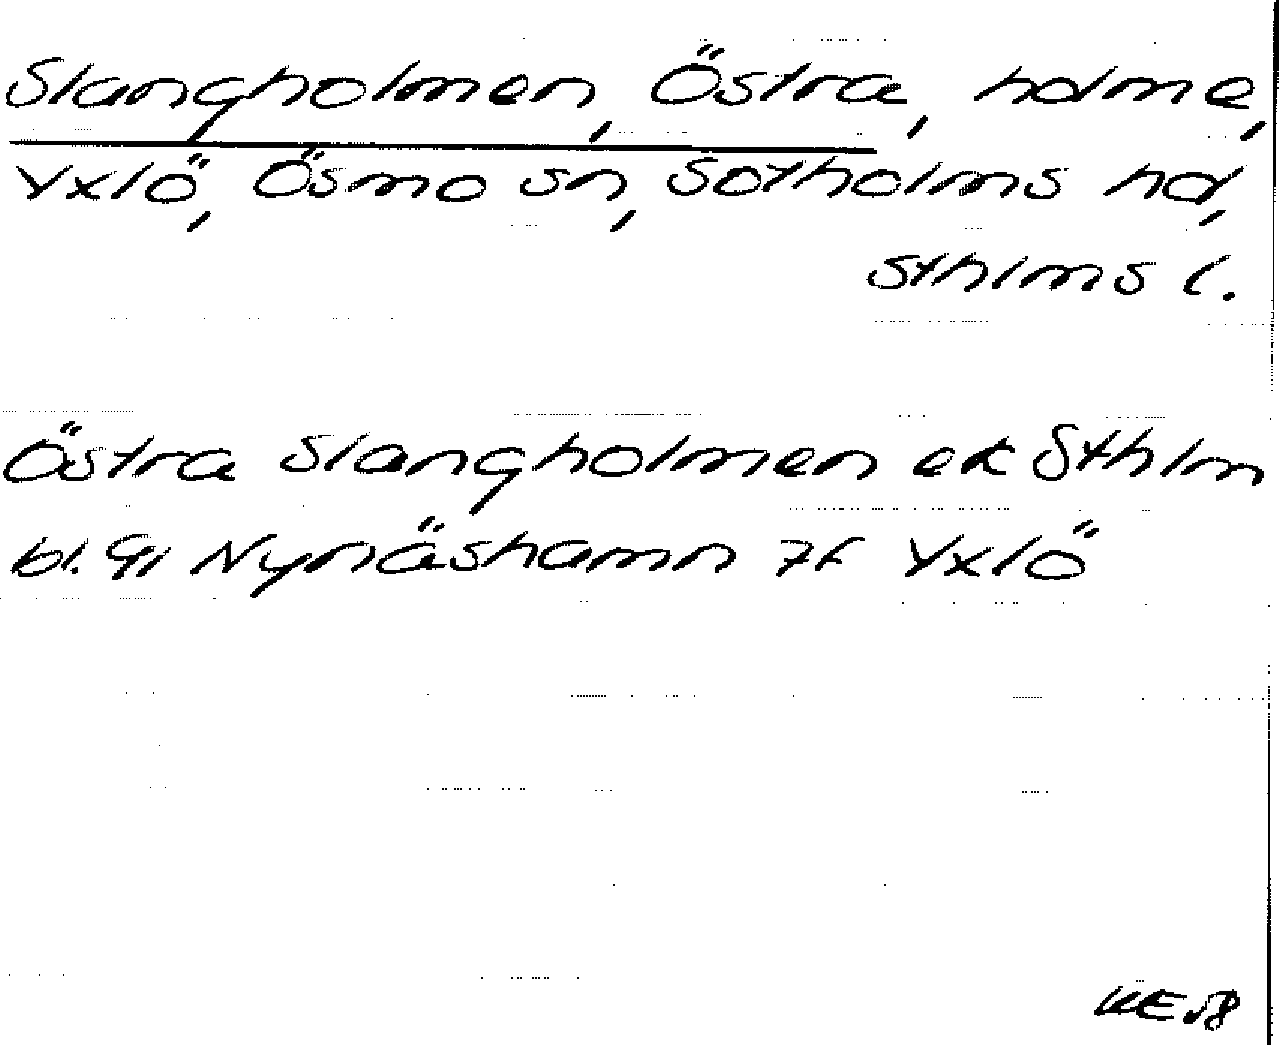 Slangholmen, Östra, holme,
Yxlö, Ösmo sn, Sotholms hd,
Sthlms l.
Östra Slangholmen ek Sthlm
bl. 91 Nynäshamn 7f Yxlö